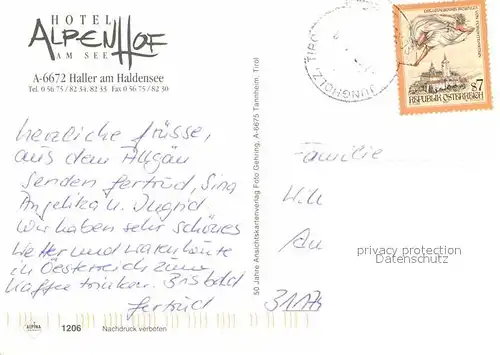 HOTEL
ALPENHOF
AM SEE
A-6672 Haller am Haldensee
Tel. 0 56 75 / 82 34, 82 33 Fax 0 56 75 / 82 30
herzliche Grüsse,
aus dem Allgäu
senden Gertrud, Sina
Angelika u. Ingrid
Wir haben sehr schönes
Wetter und waren heute
in Oesterreich zum
Kaffee trinken. Bis bald
Gertrud
50 Jahre Ansichtskartenverlag Foto Gehring, A-6675 Tannheim, Tirol
JUNGHOLZ, TIROL
S 7
REPUBLIK ÖSTERREICH
Familie
privacy protection
Datenschutz
ALPINA
1206 Nachdruck verboten